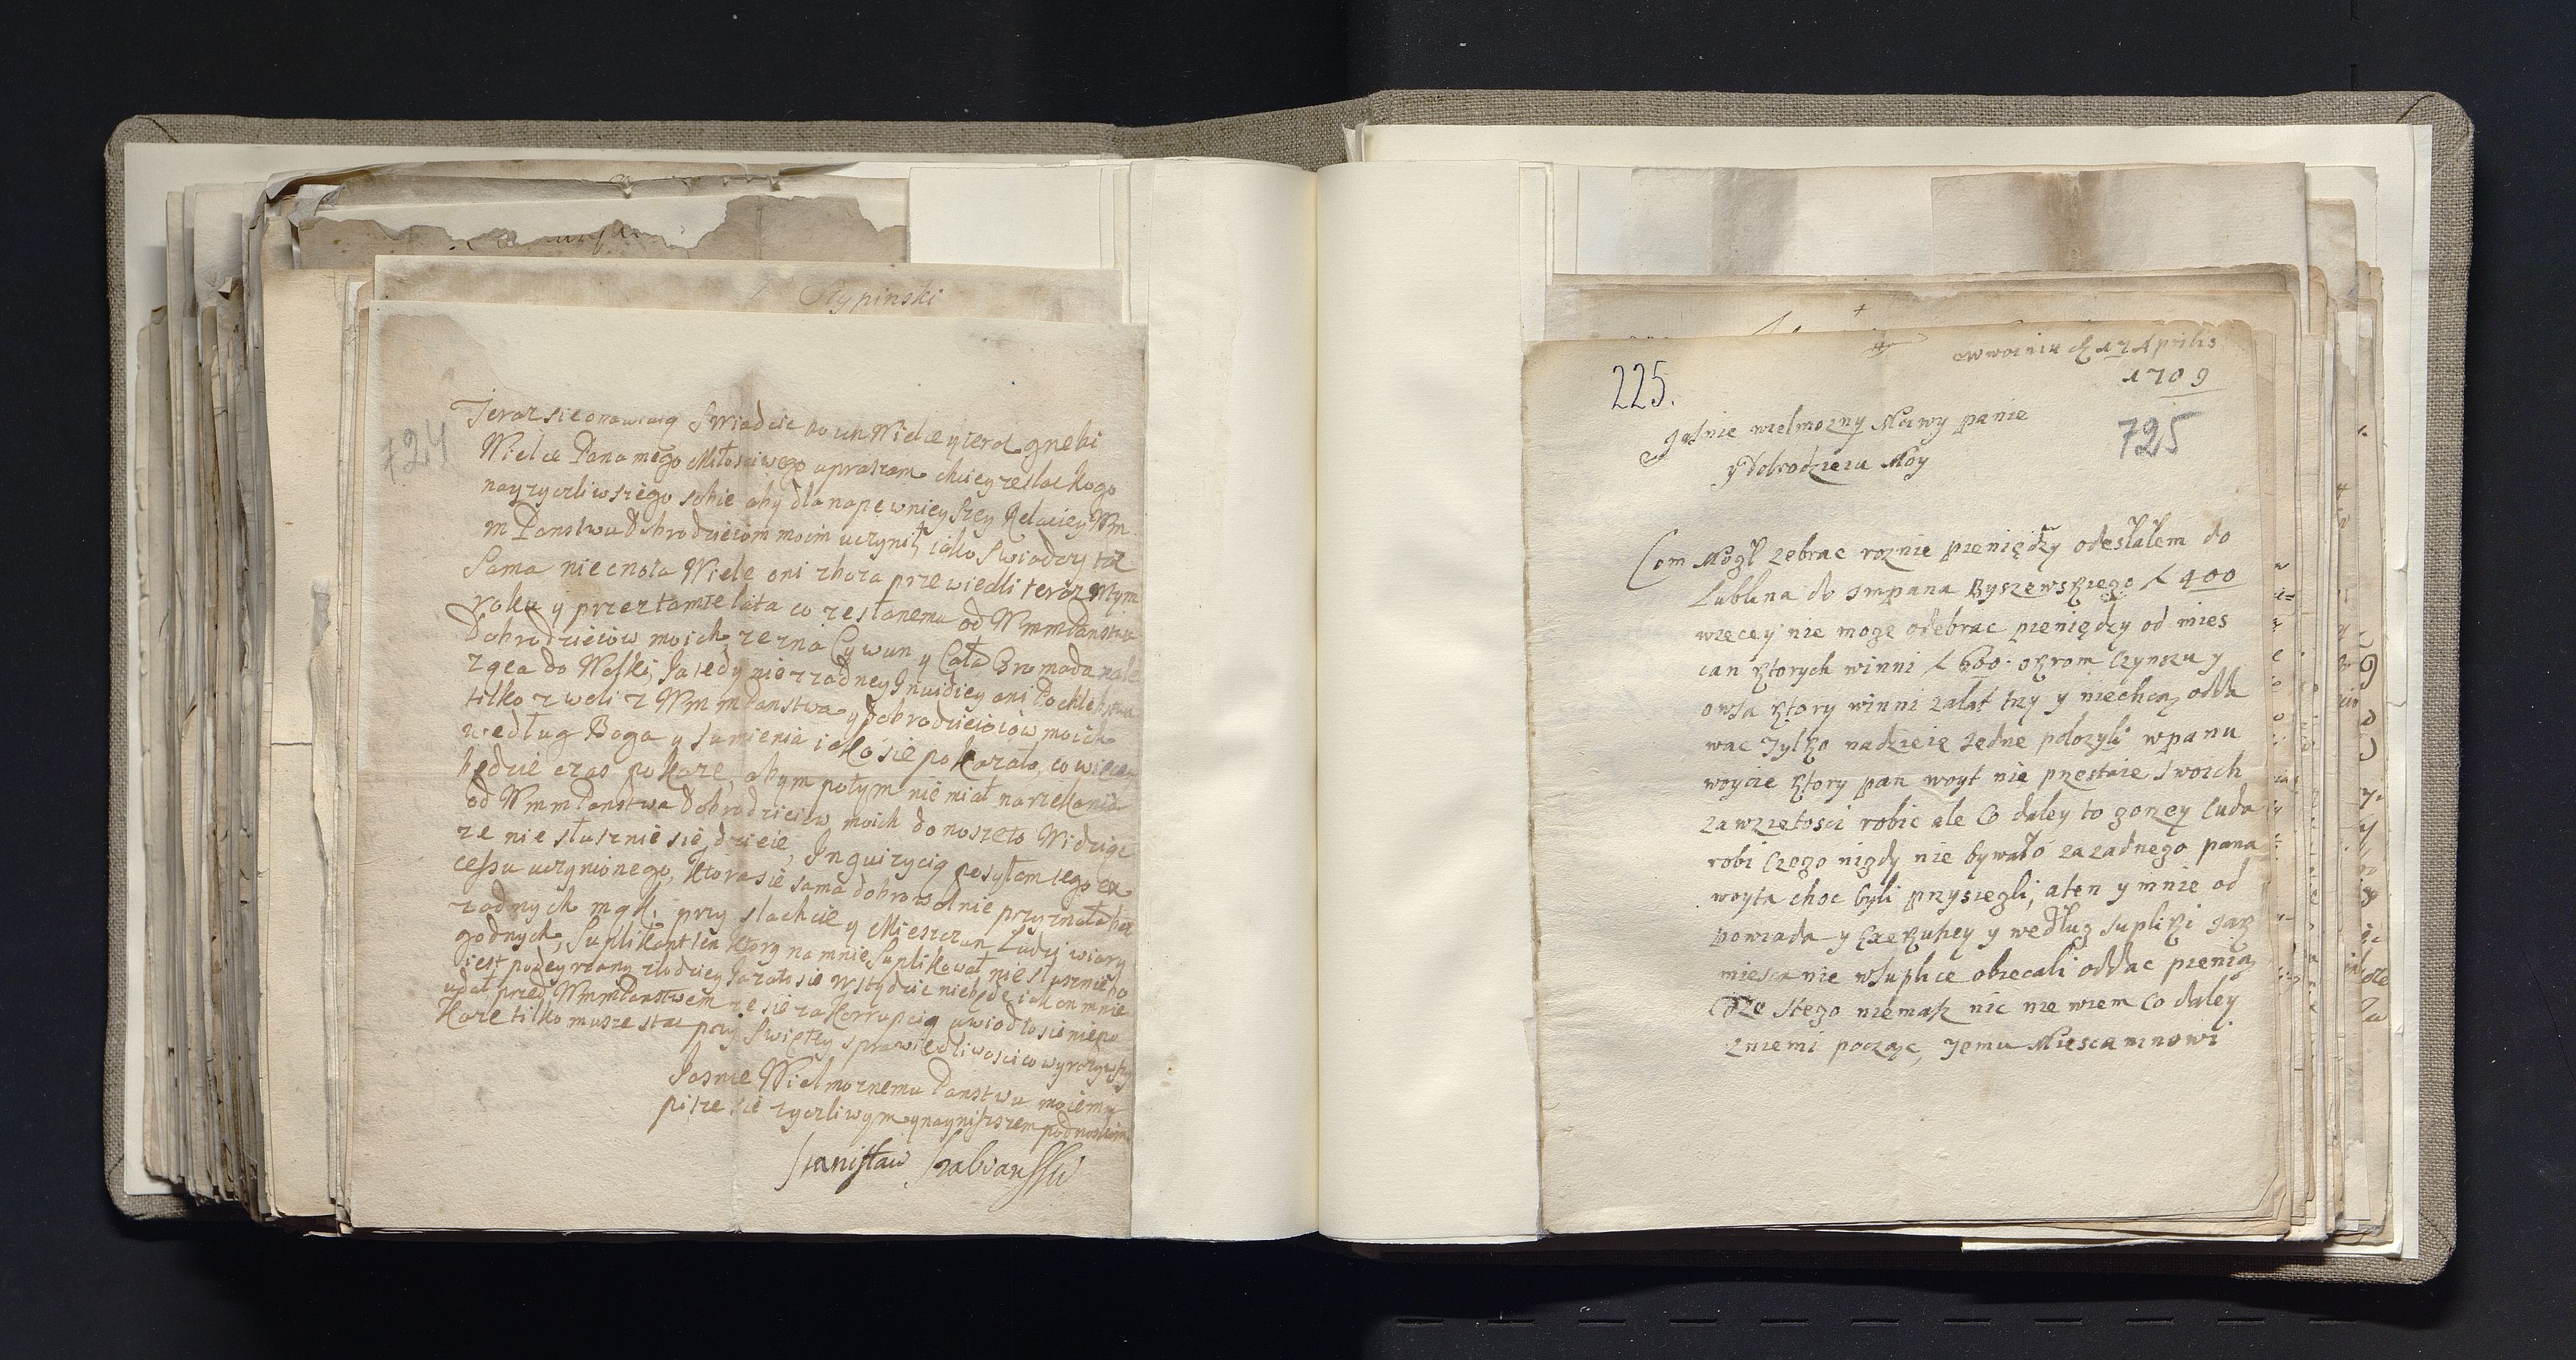 Stypinski
724
Teraz sie onawiaią Swiadcie no ich Wielce y teraz gnebi
Wielce Pana mego Miłosciwego upraszam chciey zesłac kogo
nayzyczliwszego sobie aby dla napewnieyszey Relaciey Wm
m Panstwu Dobrodzieiom moim uczynił, iako Swiadczy ta
Sama niecnota Wiele oni zboza przewiedli teraz Wtym
roku y przez tamte lata co zesłanemu od WmmPanstwa
Dobrodzieiow moich zezna Cywun y Cała Gromada nale
ząca do Wolki, Ja tedy nie z zadney Inuidiey ani Pochlebstwa
tilko z woli z Wm mPanstwa y Dobrodzieiow moich
według Boga y Sumienia iako sie pokazało, co wiecey
będzie czas pokaze, abym potym nie miał narzekania
od WmmPanstwa Dobrodzieiow moich donoszeto Widząc
ze nie słusznie się dzieie, Inquizycią posyłam tego ex
cessu uczynionego, ktora sie sama dobrowolnie przyznała bez
zadnych mąk, przy slachcie y Mieszczan Ludzi wiary
godnych, Suplikant ten ktory na mnie Suplikował nie słusznie bo
iest podeyrzany złodziey
udał przed WmmPanstwem ze sie za korrupcią uwiodło sie niepo
kaze tilko musze stac przy Swiętey sprawiedliwosci co wyraziwszy
Jasnie Wielmoznemu Panstwu moiemu
pisze sie zyczliwym ynayniższem podnoskiem
Stanisław
225.
17 Aprilis
1709
725
Jasnie wielmozny Mciwy panie
y Dobrodzieiu Moy
Com Mogł zebrac roznie pieniędzy odesłałem do
Lublina do Jmpana Ryszewskiego f 400
wiecey nie moge odebrac pieniędzy od mies
can ktorych winni f 600. okrom Czynszu y
owsa ktory winni zalat trzy y niechcą odda
wac Tylko nadzieie Jedne polozyli wpanu
woycie ktory pan woyt nie przestaie swoich
zawzietosci robic ale Co daley to gorzey Cuda
robi Czego nigdy nie bywało za zadnego pana
woyta choc byli przysiegli, aten y mnie od
powiada y Exekuhey y według supliki Jak
miescanie wsuplice obiecali oddac pienią
dze stego niemasz nic nie wiem Co daley
zniemi począc, Temu Miescaninowi